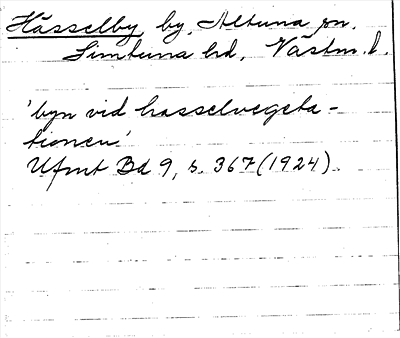 Hässelby, by, Altuna sn,
Simtuna hd, Västm. l.
'byn vid hasselvegeta-
tionen'
Ufmt Bd 9, s. 367 (1924).